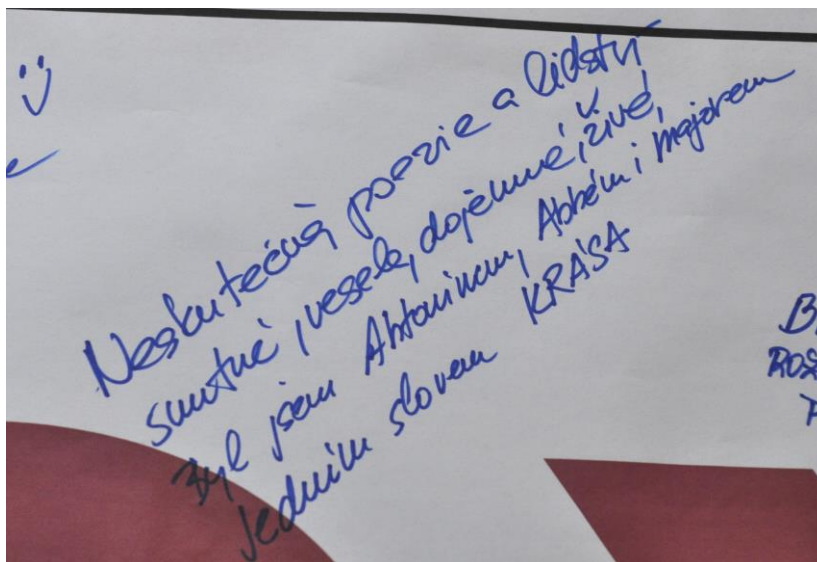 Neskutečná poezie a lidství
smutné, veselé, dojemné, živé,
Byl jsem Antonínem, Abbém i Majorem
Jedním slovem KRÁSA